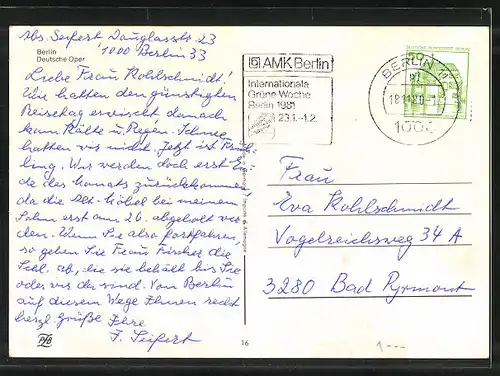 Abs. Seifert Douglasstr. 23
1000 Berlin 33
Berlin
Deutsche Oper
Liebe Frau Kohlschmidt!
Wir hatten den günstigsten
Reisetag erwischt danach
kam Kälte u. Regen. Schnee
hatten wir nicht. Jetzt ist Früh-
ling. Wir werden doch erst En-
de des Monats zurückkommen,
da die Möbel bei meinem
Sohn erst am 26. abgeholt wer-
den. Wenn Sie also fortfahren,
so geben Sie Frau Fischer die
Schl. ab, die sie behält bis Sie
oder wir da sind. Von Berlin
auf diesem Wege Ihnen recht
herzl. Grüße Ihre
F. Seifert
16
AMK Berlin
Internationale
Grüne Woche
Berlin 1981
23.1.-1.2.
BERLIN 11
1000
DEUTSCHE BUNDESPOST BERLIN
50
Frau
Eva Kohlschmidt
Vogelreichsweg 34 A
3280 Bad Pyrmont